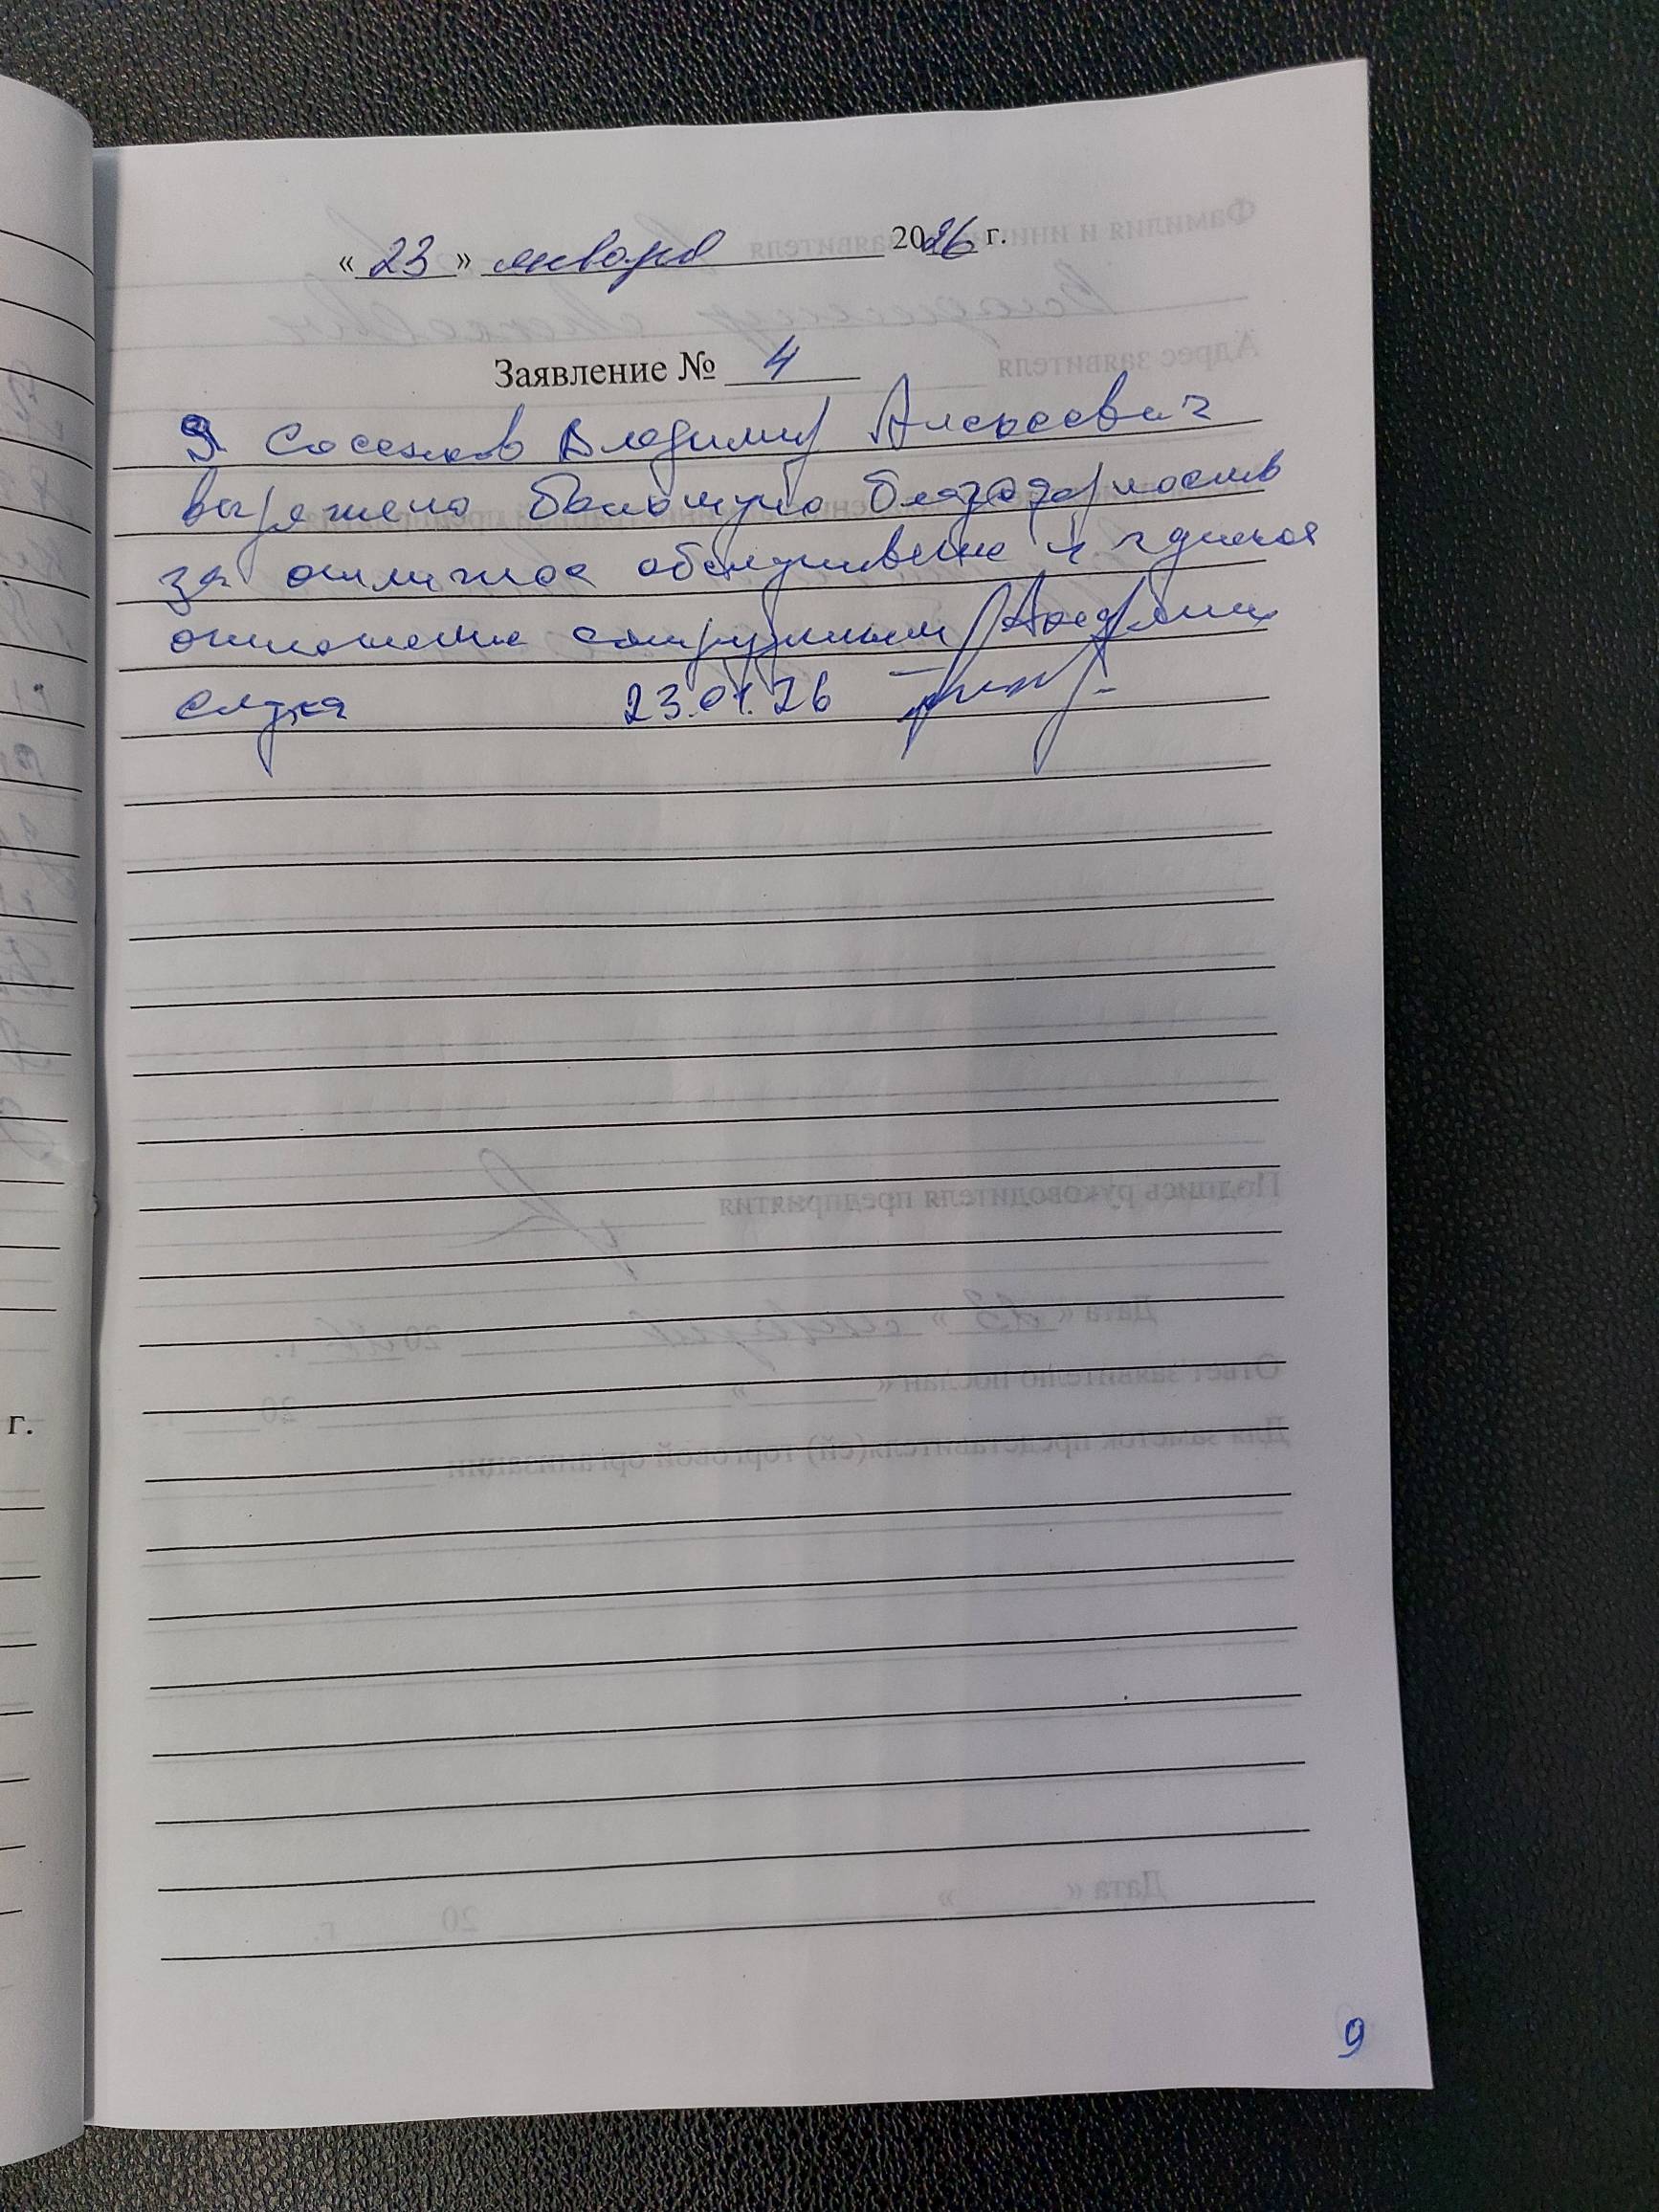 « 23 » января 2026 г.
Заявление № 4
Я Сосенков Владимир Алексеевич
выражаю большую благодарность
за отличное обслуживание и чуткое
отношение сотрудникам
слуха 23.01.26
9